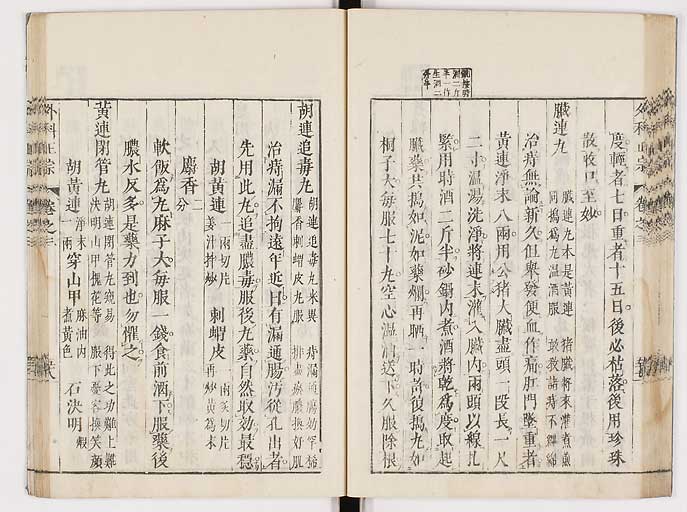 度輕者七日重者十五日後必枯落後用珍珠
散收口至妙
臟連丸
臟連丸本是黃連 猪臟將來灌煮煎
同搗為丸溫酒服
治痔無論新久但舉發便血作痛肛門墜重者
黃連淨末八兩用公猪大臟盡頭一段長一尺
二寸溫湯洗淨將連末灌入臟內兩頭以線扎
緊用時酒二斤半砂鍋內煮酒將乾為度取起
臟藥共搗如泥如藥爛再晒一時復搗丸如
桐子大每服七十丸空心溫酒送下久服除根
外科正宗 卷之三
胡連追毒丸
胡連追毒丸米異 痔漏通腸妙罕稀
麝香刺蝟皮丸服 排盡膿膿換好肌
治痔漏不拘遠年近日有漏通腸污從孔出者
先用此丸追盡膿毒服後丸藥自然取效最穩
胡黃連 一兩切片 姜汁拌炒 刺蝟皮 一兩炙切片 再炒黃為末
麝香 二分
軟飯為丸麻子大每服一錢食前酒下服藥後
膿水反多是藥力到也勿懼之
黃連閉管丸
胡連閉管丸宛易 得此之功難上難
決明山甲槐花等 服下發容換笑顏
胡黃連 淨末一兩 穿山甲 麻油內煮黃色 石決明 煅
外科正宗 卷之三